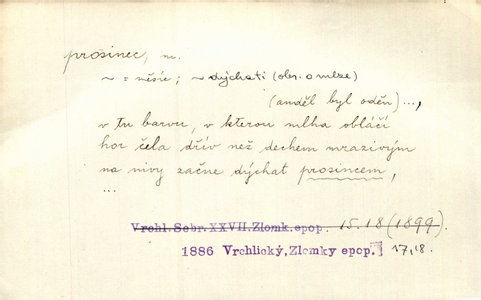 prosinec, m.
~ = měsíc; ~ dýchati (obr. o mlze)
(anděl byl oděn) ...,
v tu barvu, v kterou mlha obláčí
hor čela dřív než dechem mrazivým
na nivy začne dýchat prosincem,
...
Vrchl. Sebr. XXVII. Zlomk. epop. 15.18 (1899).
1886 Vrchlický, Zlomky epop.] 17,18.